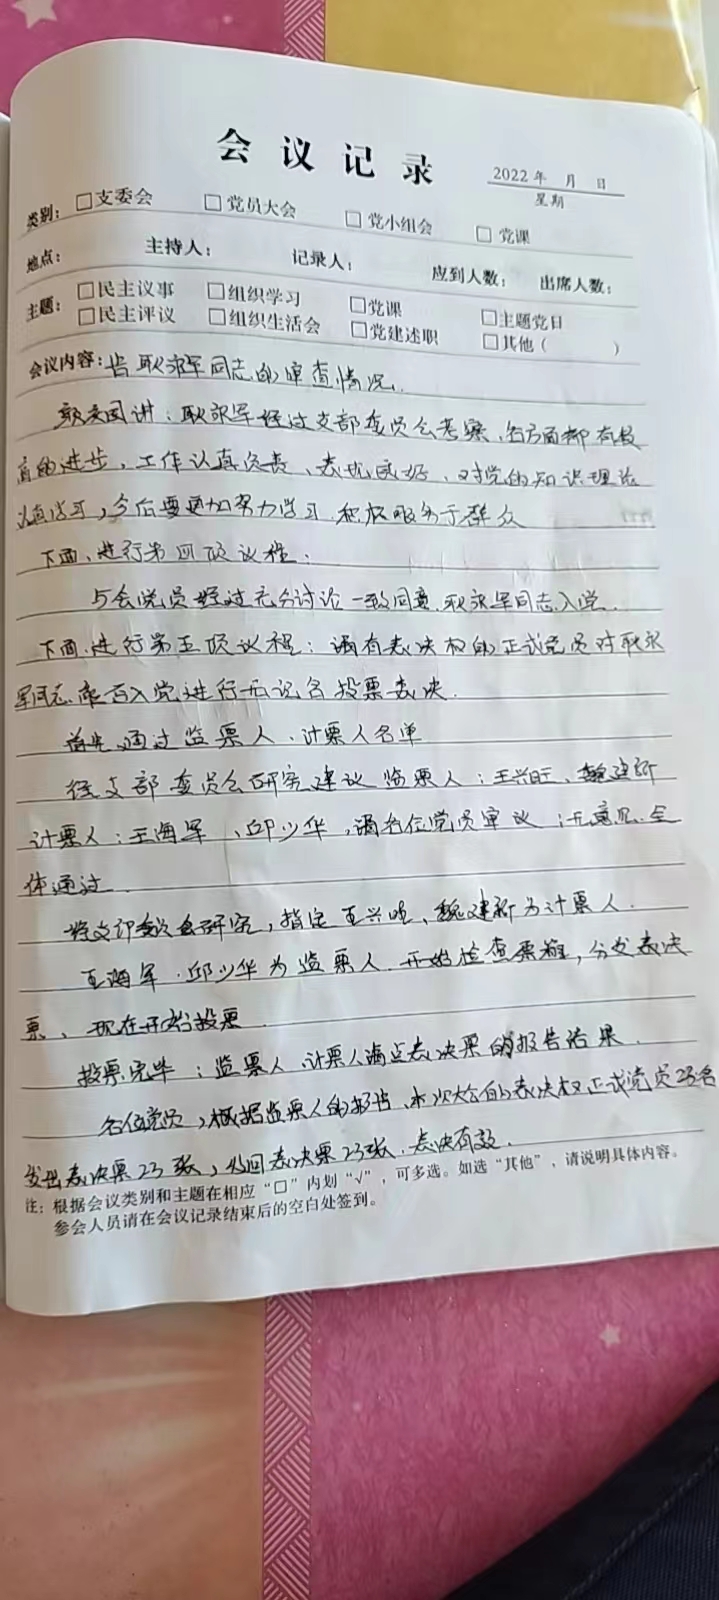 会议记录
2022年 月 日
星期
类别：□支委会 □党员大会 □党小组会 □党课
地点： 主持人： 记录人： 应到人数： 出席人数：
主题：□民主议事 □组织学习 □党课 □主题党日
□民主评议 □组织生活会 □党建述职 □其他（ ）
会议内容：告耿永军同志的审查情况.
讲：耿永军经过支部委员会考察、各方面都有较
高的进步，工作认真负责、表现良好、对党的知识理论
认真学习，今后要更加努力学习.积极服务于群众
下面、进行第四项议程：
与会党员经过充分讨论一致同意.耿永军同志入党.
下面.进行第五项议程：请有表决权的正式党员对耿永
军同志能否入党进行无记名投票表决.
首先通过监票人、计票人名单
经支部委员会研究建议监票人：王兴旺、魏建新
计票人：王海军、邱少华,请各位党员审议；无意见.全
体通过.
经支部委会研究，指定王兴旺、魏建新为计票人.
王海军.邱少华为监票人.开始检查票箱，分发表决
票、现在开始投票.
投票完毕：监票人、计票人清点表决票的报告结果.
各位党员，根据监票人的报告、本次大会的表决权正式党员23名
发出表决票23张，收回表决票23张.表决有效.
注：根据会议类别和主题在相应“□”内划“√”，可多选。如选“其他”，请说明具体内容。
参会人员请在会议记录结束后的空白处签到。